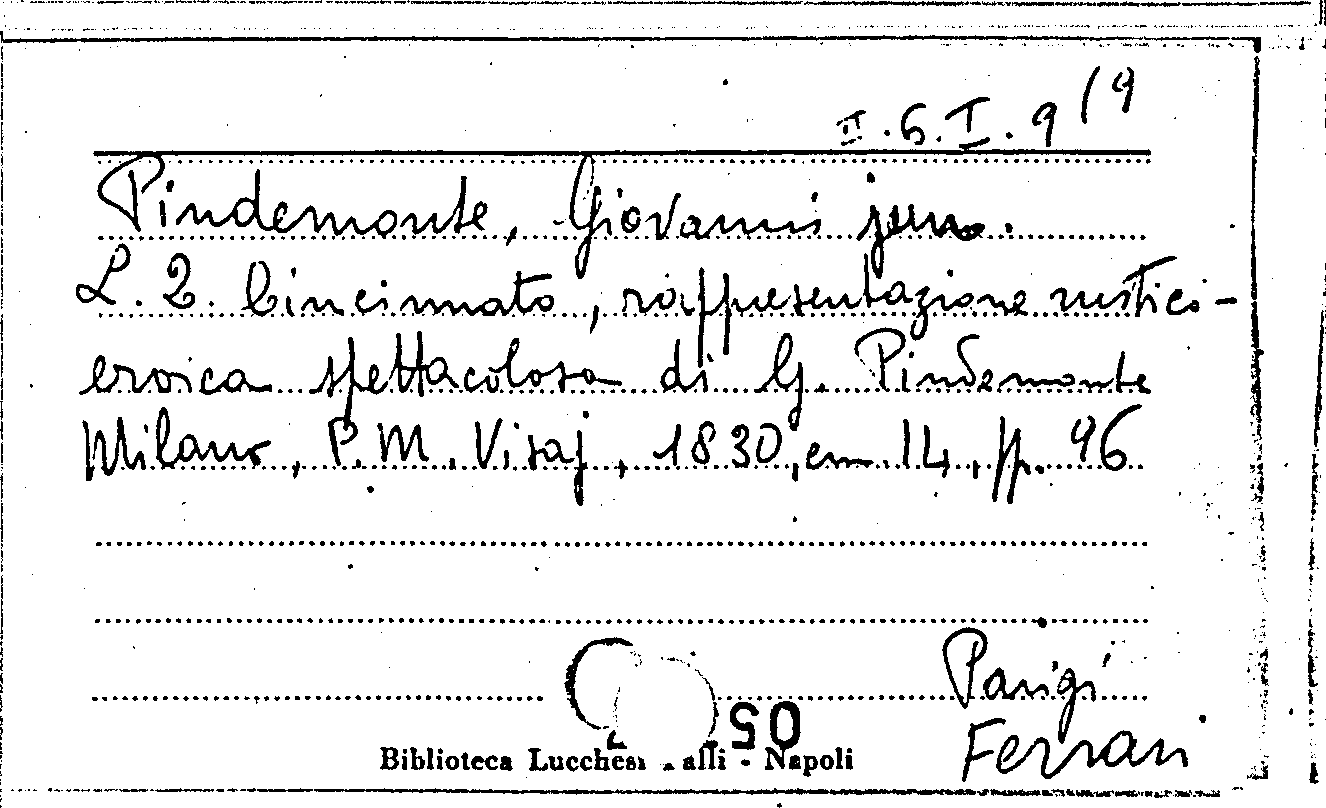 II.6.I.9/9
Pindemonte, Giovanni juno.
L. 2. Cincinnato, rappresentazione rustico-
eroica spettacolosa di G. Pindemonte
Milano, P. M. Visaj, 1830, in 14, pp. 96
Parigi
05
Biblioteca Lucchesi alli - Napoli
Ferrari